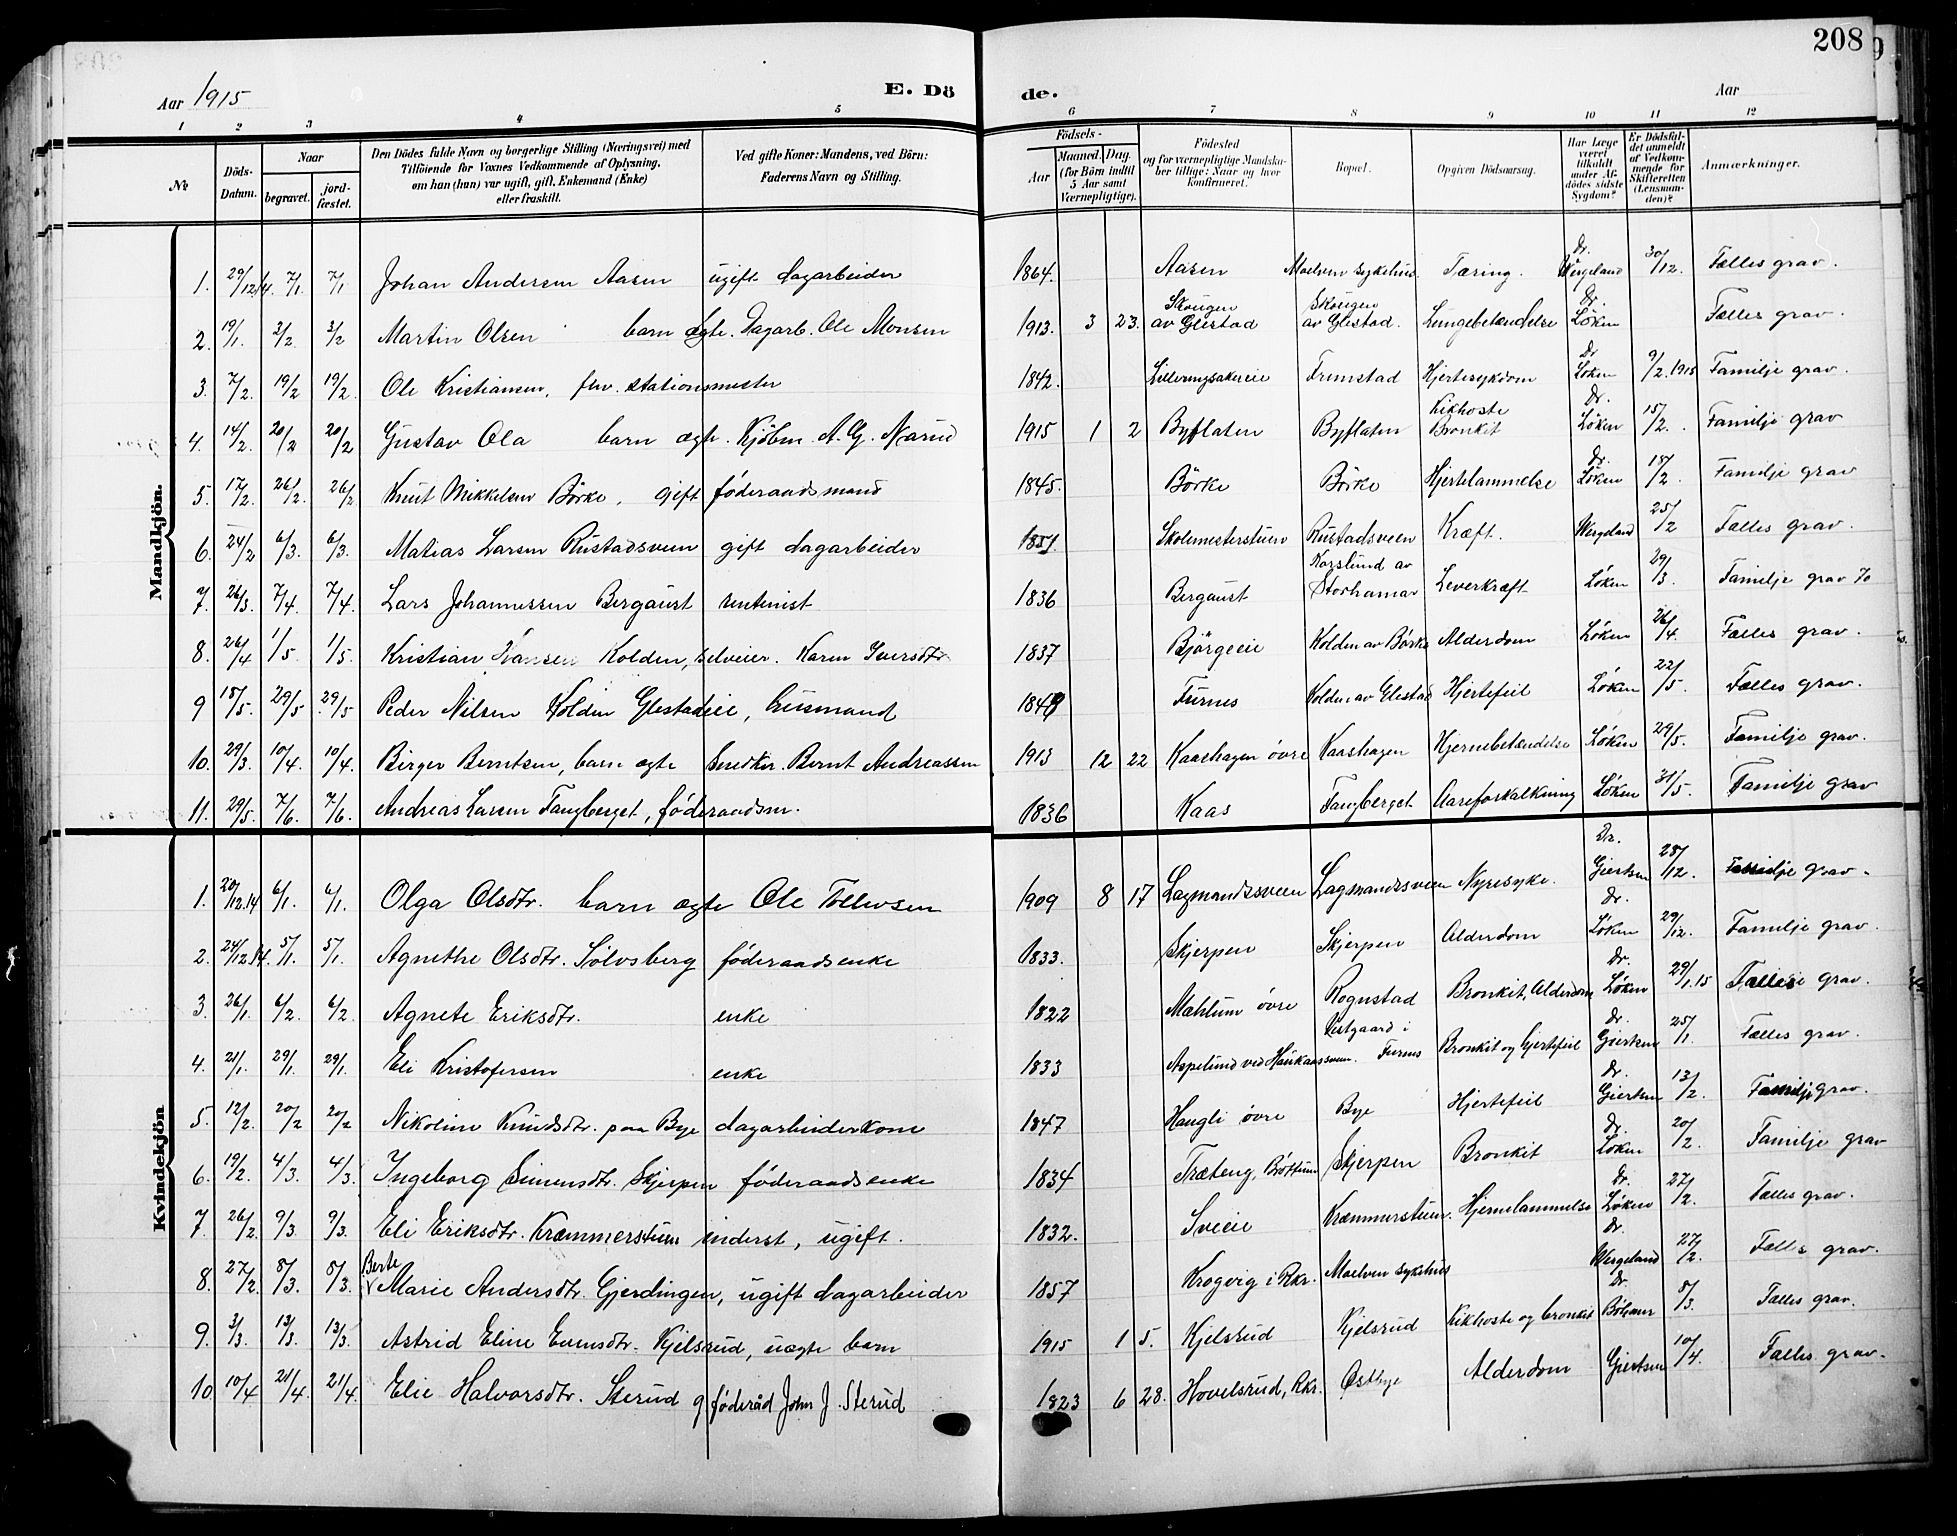 208
Aar 1915 E. Dö de. Aar
1 2 3 4 5 6 7 8 9 10 11 12
No Döds-Datum. Naar begravet. jordfæstet. Den Dödes fulde Navn og borgerlige Stilling (Næringsvei) med Tilföiende for Voxnes Vedkommende af Oplysning, om han (hun) var ugift, gift, Enkemand (Enke) eller fraskilt. Ved gifte Koner: Mandens, ved Börn: Faderens Navn og Stilling. Födsels- Aar Maaned. Dag. (for Börn indtil 5 Aar samt Værnepligtige). Födested og for værnepligtige Mandskaber tillige: Naar og hvor konfirmeret. Bopæl. Opgiven Dödsaarsag. Har Læge været tilkaldt under Afdödes sidste Sygdom? Er Dödsfaldet anmeldt af Vedkommende for Skifteretten (Lensmanden)? Anmærkninger.
Mandkjön.
1. 29/12 14. 7/1. 7/1 Johan Andersen Aasen ugift dagarbeider 1864. Aasen Moelven sykehus Tæring. Dr. Wergeland 30/12. Fælles grav.
2. 19/1. 3/2. 3/2 Martin Olsen barn ægte. Dagarb. Ole Monsen 1913. 3 23. Skougen av Glestad Skougen av Glestad. Lungebetændelse Dr. Løken Fælles grav.
3. 7/2. 19/2 19/2. Ole Kristiansen, fhv. stationsmester 1842. Lilleringsakereie Fremstad Hjertesykdom Dr Løken 9/2.1915 Familje grav.
4. 14/2. 20/2 20/2 Gustav Ola barn ægte. Kjöbm. A. G. Narud 1915 1 2 Byflaten Byflaten Kikhoste Bronkit Dr. Løken 15/2. Familje grav
5. 17/2. 26/2. 26/2 Knut Mikkelsen Börke, gift føderaadsmand 1845. Börke Börke Hjertelammelse Dr. Løken 18/2. Familje grav
6. 24/2 6/3. 6/3. Matias Larsen Rustadsveen gift dagarbeider 1851. Skolemesterstuen Rustadsveen Kræft. Wergeland 25/2 Fælles grav.
7. 26/3. 7/4. 7/4. Lars Johannessen Bergaust rentenist 1836 Bergaust Korslund av Storhamar Leverkræft Løken 29/3. Familje grav
8. 26/4 1/5 1/5. Kristian Hansen Kolden, selveier. Karen Iversdtr 1837 Björgeeie Kolden av Börke Alderdom Løken 26/4. Fælles grav.
9 18/5. 29/5 29/5 Peder Nilsen Kolden Glestadeie, husmand 1849 Furnes Kolden av Glestad Hjertefeil Løken 22/5. Fælles grav.
10. 29/3. 10/4. 10/4. Birger Berntsen, barn ægte Snedker. Bernt Andreassen 1913 12 22 Kaashagen övre Kaashagen Hjernebetændelse Løken 29/5. Familje grav.
11. 29/5. 7/6. 7/6. Andreas Larsen Fangberget, føderaadsm. 1836 Kaas Fangberget Aareforkalkning Løken 31/5. Familje grav
Kvindekjön
1. 20/12.14 6/1. 6/1. Olga Olsdtr. barn ægte Ole Tollevsen 1909 8 17 Lagmandssveen Lagmandssveen Nyresyke. Dr. Giertsen 28/12. Familje grav.
2. 24/12.14. 5/1. 5/1. Agnethe Olsdtr. Sølvsberg føderaadsenke 1833. Skjerpen Skjerpen Alderdom Dr. Løken 29/12. Familje grav.
3. 26/1. 6/2. 6/2 Agnete Eriksdtr. enke 1822 Mæhlum övre Rognstad Bronkit, Alderdom Dr. Løken 29/1.15 Fælles grav.
4. 21/1. 29/1. 29/1. Eli Kristofersen enke 1833 Aspelund ved Haukaassveen. Vestgaard i Furnes Bronkit og hjertefeil Dr. Giertsen 25/1. Fælles grav.
5. 12/2. 20/2 20/2 Nikoline Knudsdtr. paa Bye dagarbeiderkone 1847 Haugli övre Bye Hjertefeil Dr. Giertsen 13/2. Familje grav.
6. 19/2. 4/3. 4/3. Ingeborg Simensdtr. Skjerpen føderaadsenke 1834 Træteng, Bröttum Skjerpen Bronkit Dr. Løken 20/2. Familje grav
7. 26/2 9/3. 9/3. Eli Eriksdtr. Kræmmerstuen inderst, ugift. 1832. Sveie Kræmmerstuen. Hjernelammelse Dr. Løken 27/2. Fælles grav.
8. 27/2. 8/3. 8/3. Berte Marie Andersdtr. Gjerdingen, ugift dagarbeider 1857 Krogvig i Rkr. Moelven sykehus Dr. Wergeland 27/2. Fælles grav.
9. 3/3. 13/3. 13/3. Astrid Eline Evensdtr. Kjelsrud, uægte barn 1915 1 5. Kjelsrud Kjelsrud Kikhoste og bronkit Dr. 8/3. Fælles grav.
10 10/4 21/4. 21/4. Elie Halvorsdtr. Sterud g føderåd John J. Sterud 1823 6 28. Hovelsrud, Rkr. Østbye Alderdom Giertsen 10/4. Fælles grav.